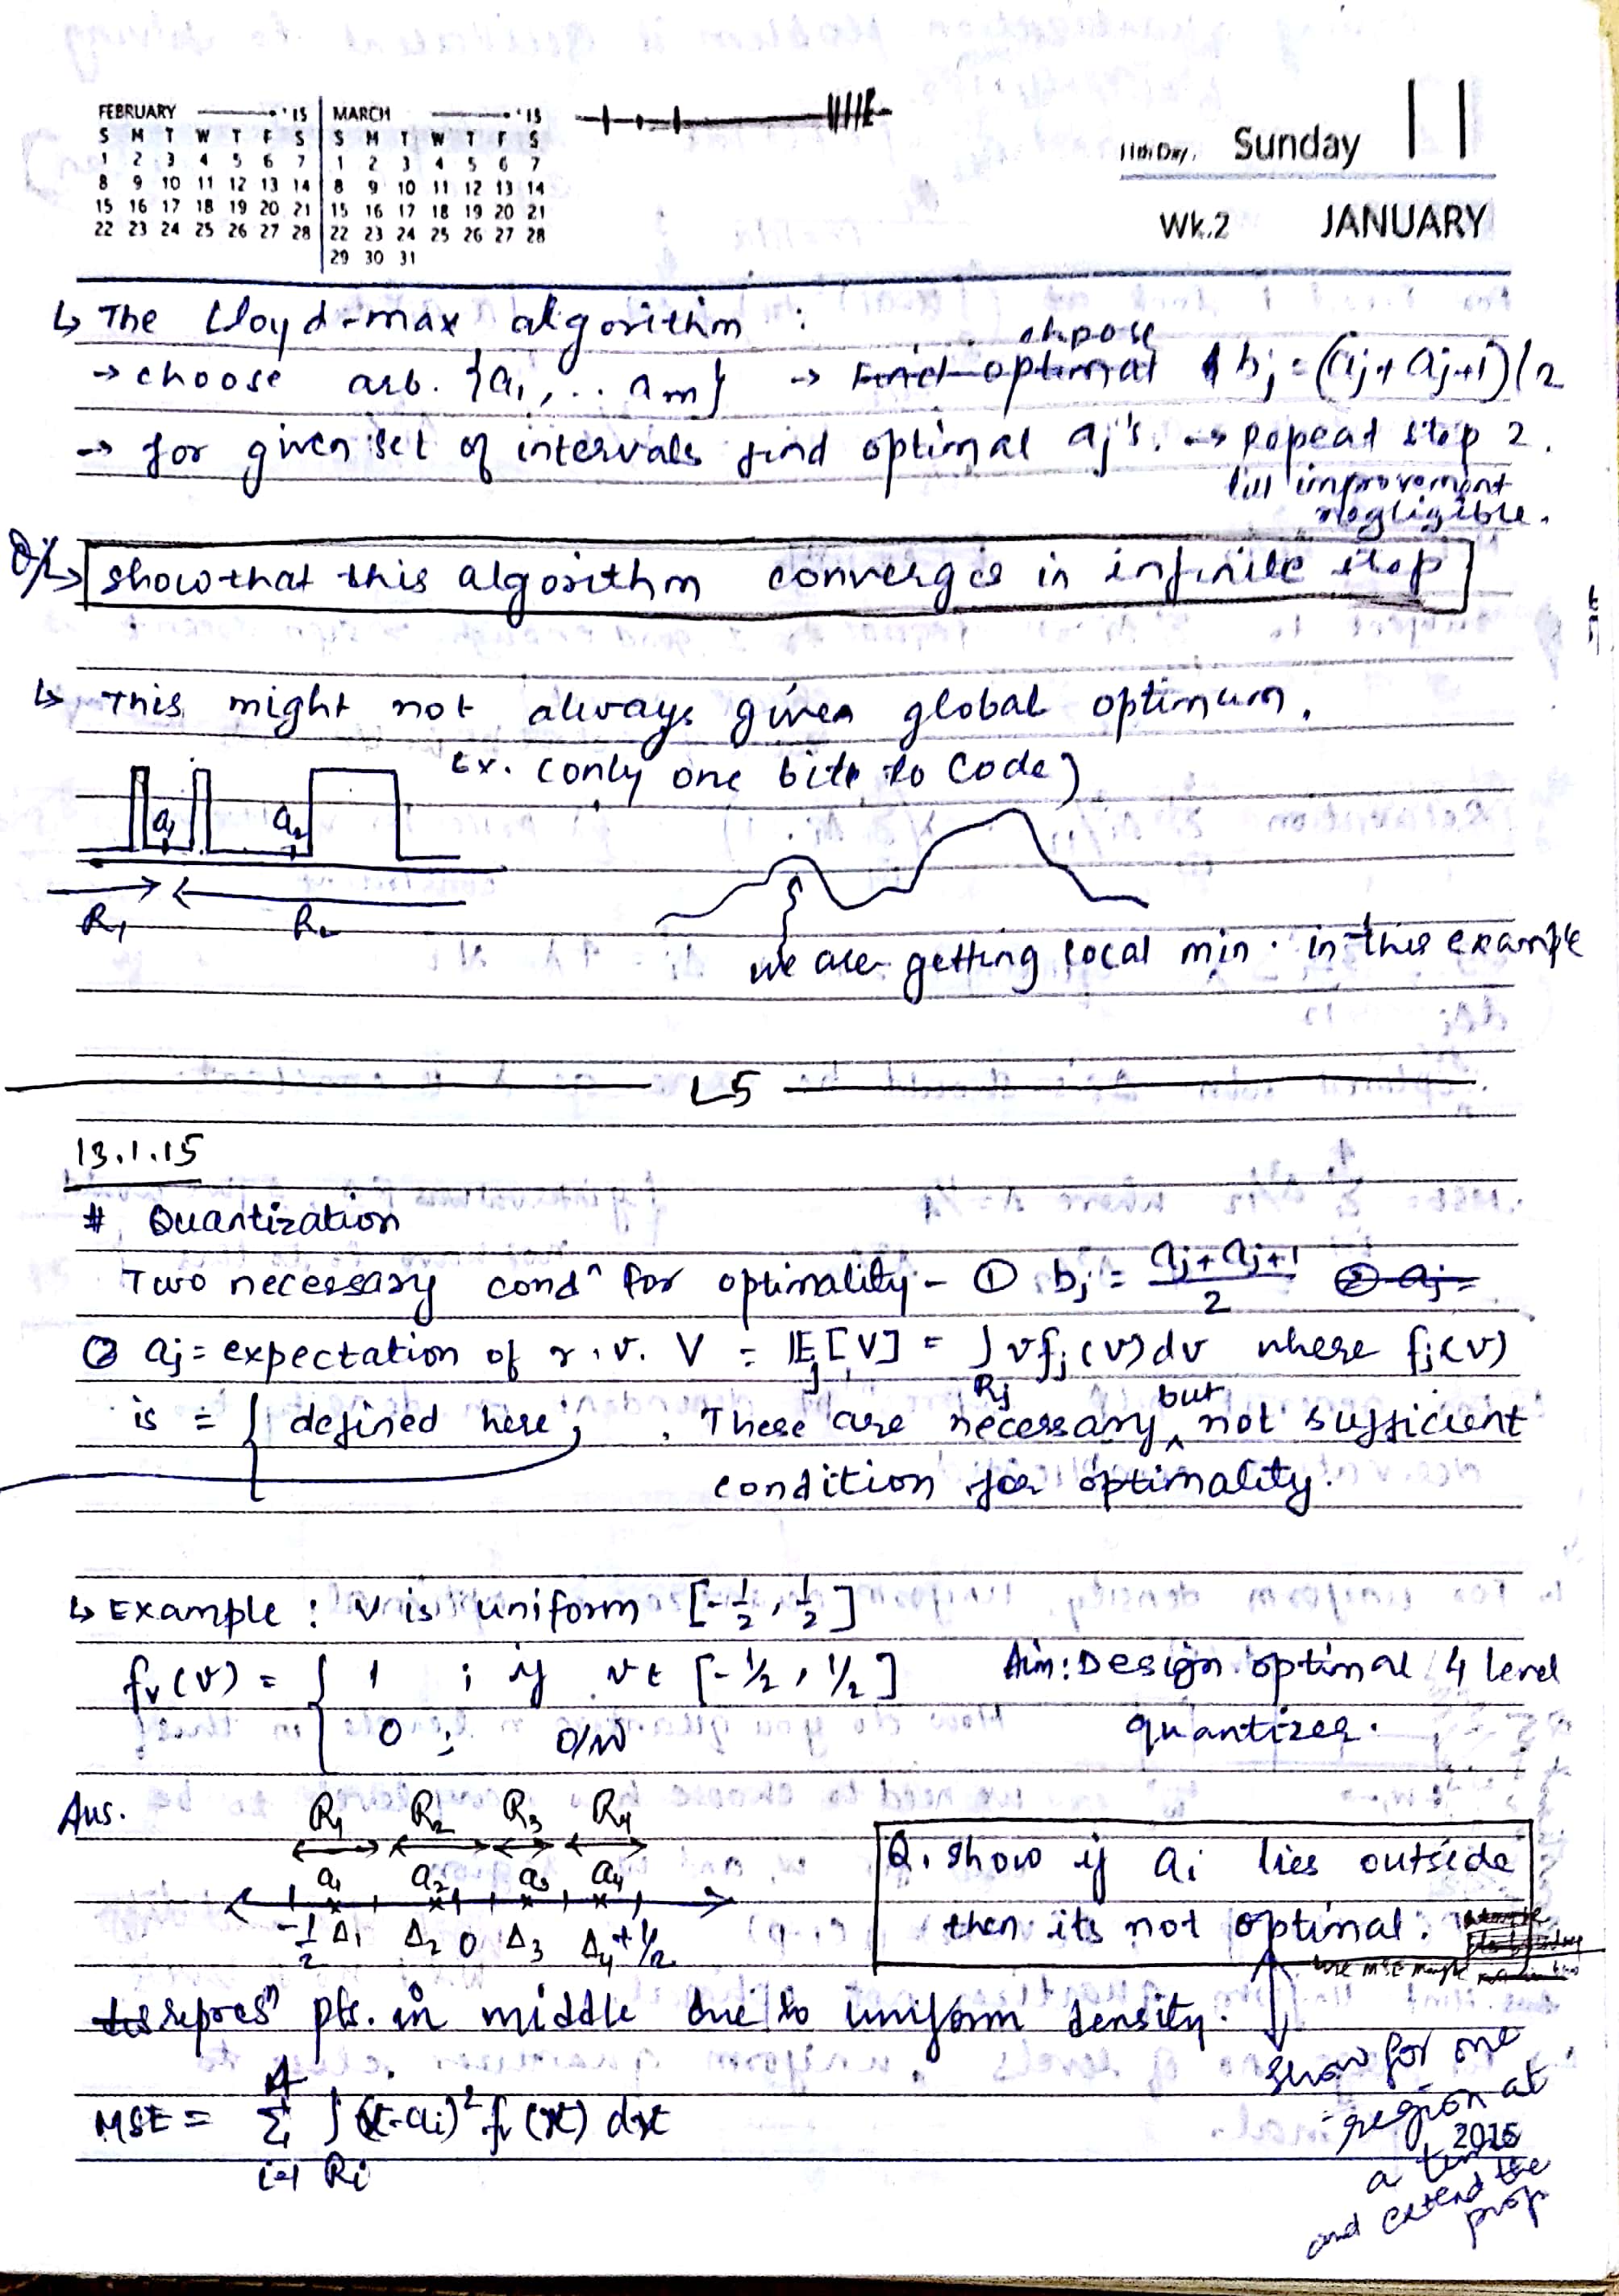 FEBRUARY '15 MARCH '15
S M T W T F S S M T W T F S
1 2 3 4 5 6 7 1 2 3 4 5 6 7
8 9 10 11 12 13 14 8 9 10 11 12 13 14
15 16 17 18 19 20 21 15 16 17 18 19 20 21
22 23 24 25 26 27 28 22 23 24 25 26 27 28
29 30 31
11th Day. Sunday 11
Wk.2 JANUARY
↳ The Lloyd-max algorithm :
→ choose arb. {a1, .. am} → Find optimal choose bj = (aj + aj+1)/2
→ for given set of intervals find optimal aj's. → Repeat step 2.
till improvement
negligible.
↳ show that this algorithm converges in infinite step
↳ This might not always given global optimum.
Ex. (only one bit to code)
a1 a2
R1 R2
we are getting local min. in this example
L5
13.1.15
# Quantization
Two necessary cond^n for optimality - ① bj = (aj + aj+1)/2 ② aj =
② aj = expectation of r.v. V = 𝔼j[V] = ∫Rj v fj(v) dv where fj(v)
is = { defined here; . These are necessary but not sufficient
condition for optimality.
↳ Example : V is uniform [-1/2, 1/2]
fv(v) = { 1 ; if v ϵ [-1/2, 1/2] Aim: Design optimal 4 level
0 ; o/w quantizer.
Ans. R1 R2 R3 R4
a1 a2 a3 a4
-1/2 Δ1 Δ2 0 Δ3 Δ4 +1/2
Q. show if ai lies outside
then its not optimal.
repres^n pts. in middle due to uniform density.
show for one
region at
a time
and extend the
prop
MSE = Σ i=1 4 ∫Ri (x-ai)² fv(x) dx
2015